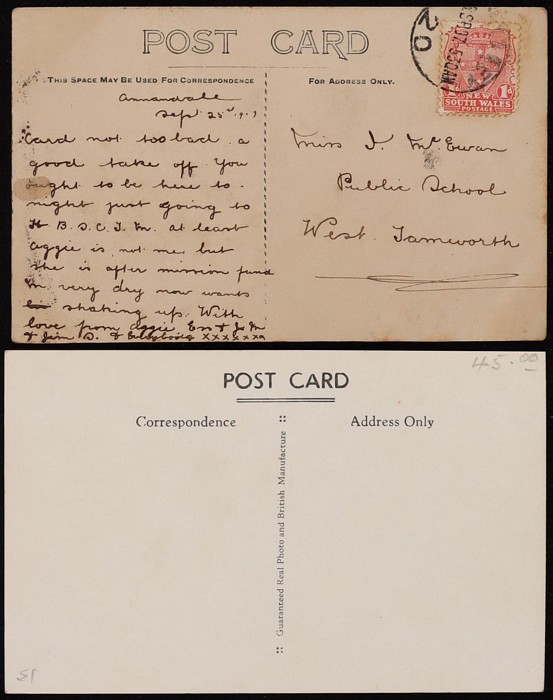 POST CARD
THIS SPACE MAY BE USED FOR CORRESPONDENCE
FOR ADDRESS ONLY.
NEW
SOUTH WALES
POSTAGE
1d
Annandale
Sept 25
Card not too bad. a
good take off. You
ought to be here to-
night just going to
B. S. C. I. M. at least
aggie is not me but
she is after mission fund
very dry now wants
shaking up. With
love from Aggie
& Jim D. &
Miss I. McEwan
Public School
West Tamworth
45.00
POST CARD
Correspondence
Address Only
Guaranteed Real Photo and British Manufacture